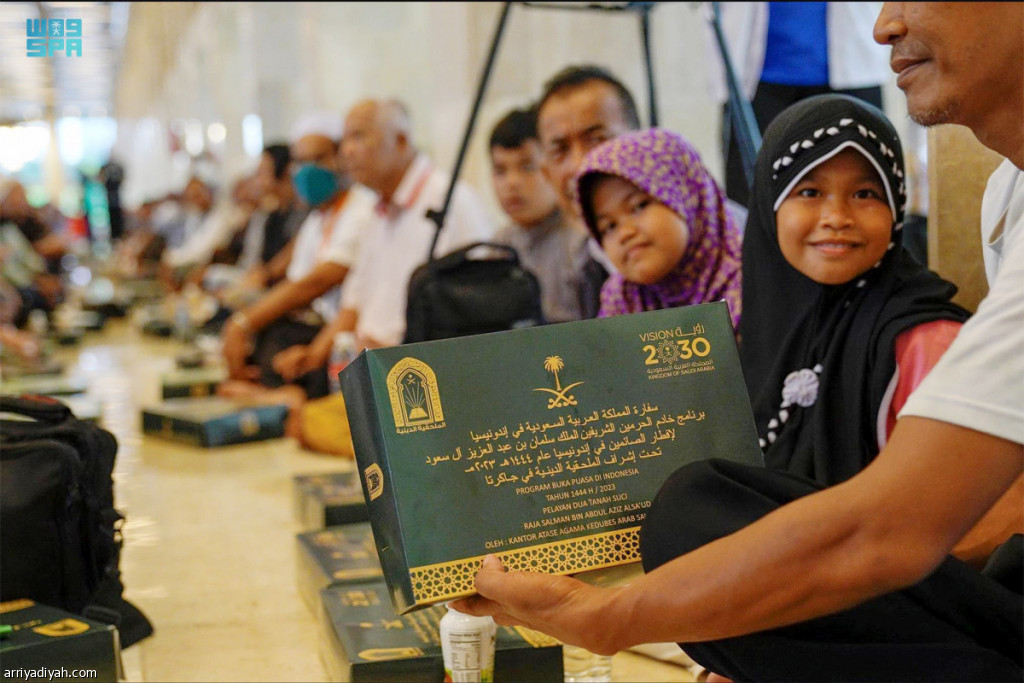 واس
SPA
الملحقية الدينية
VISION رؤية
2030
المملكة العربية السعودية
KINGDOM OF SAUDI ARABIA
سفارة المملكة العربية السعودية في إندونيسيا
برنامج خادم الحرمين الشريفين الملك سلمان بن عبد العزيز آل سعود
لإفطار الصائمين في إندونيسيا عام ١٤٤٤هـ ٢٠٢٣مـ
تحت إشراف الملحقية الدينية في جاكرتا
PROGRAM BUKA PUASA DI INDONESIA
TAHUN 1444 H / 2023
PELAYAN DUA TANAH SUCI
RAJA SALMAN BIN ABDUL AZIZ ALSA'UD
OLEH : KANTOR ATASE AGAMA KEDUBES ARAB
arriyadiyah.com